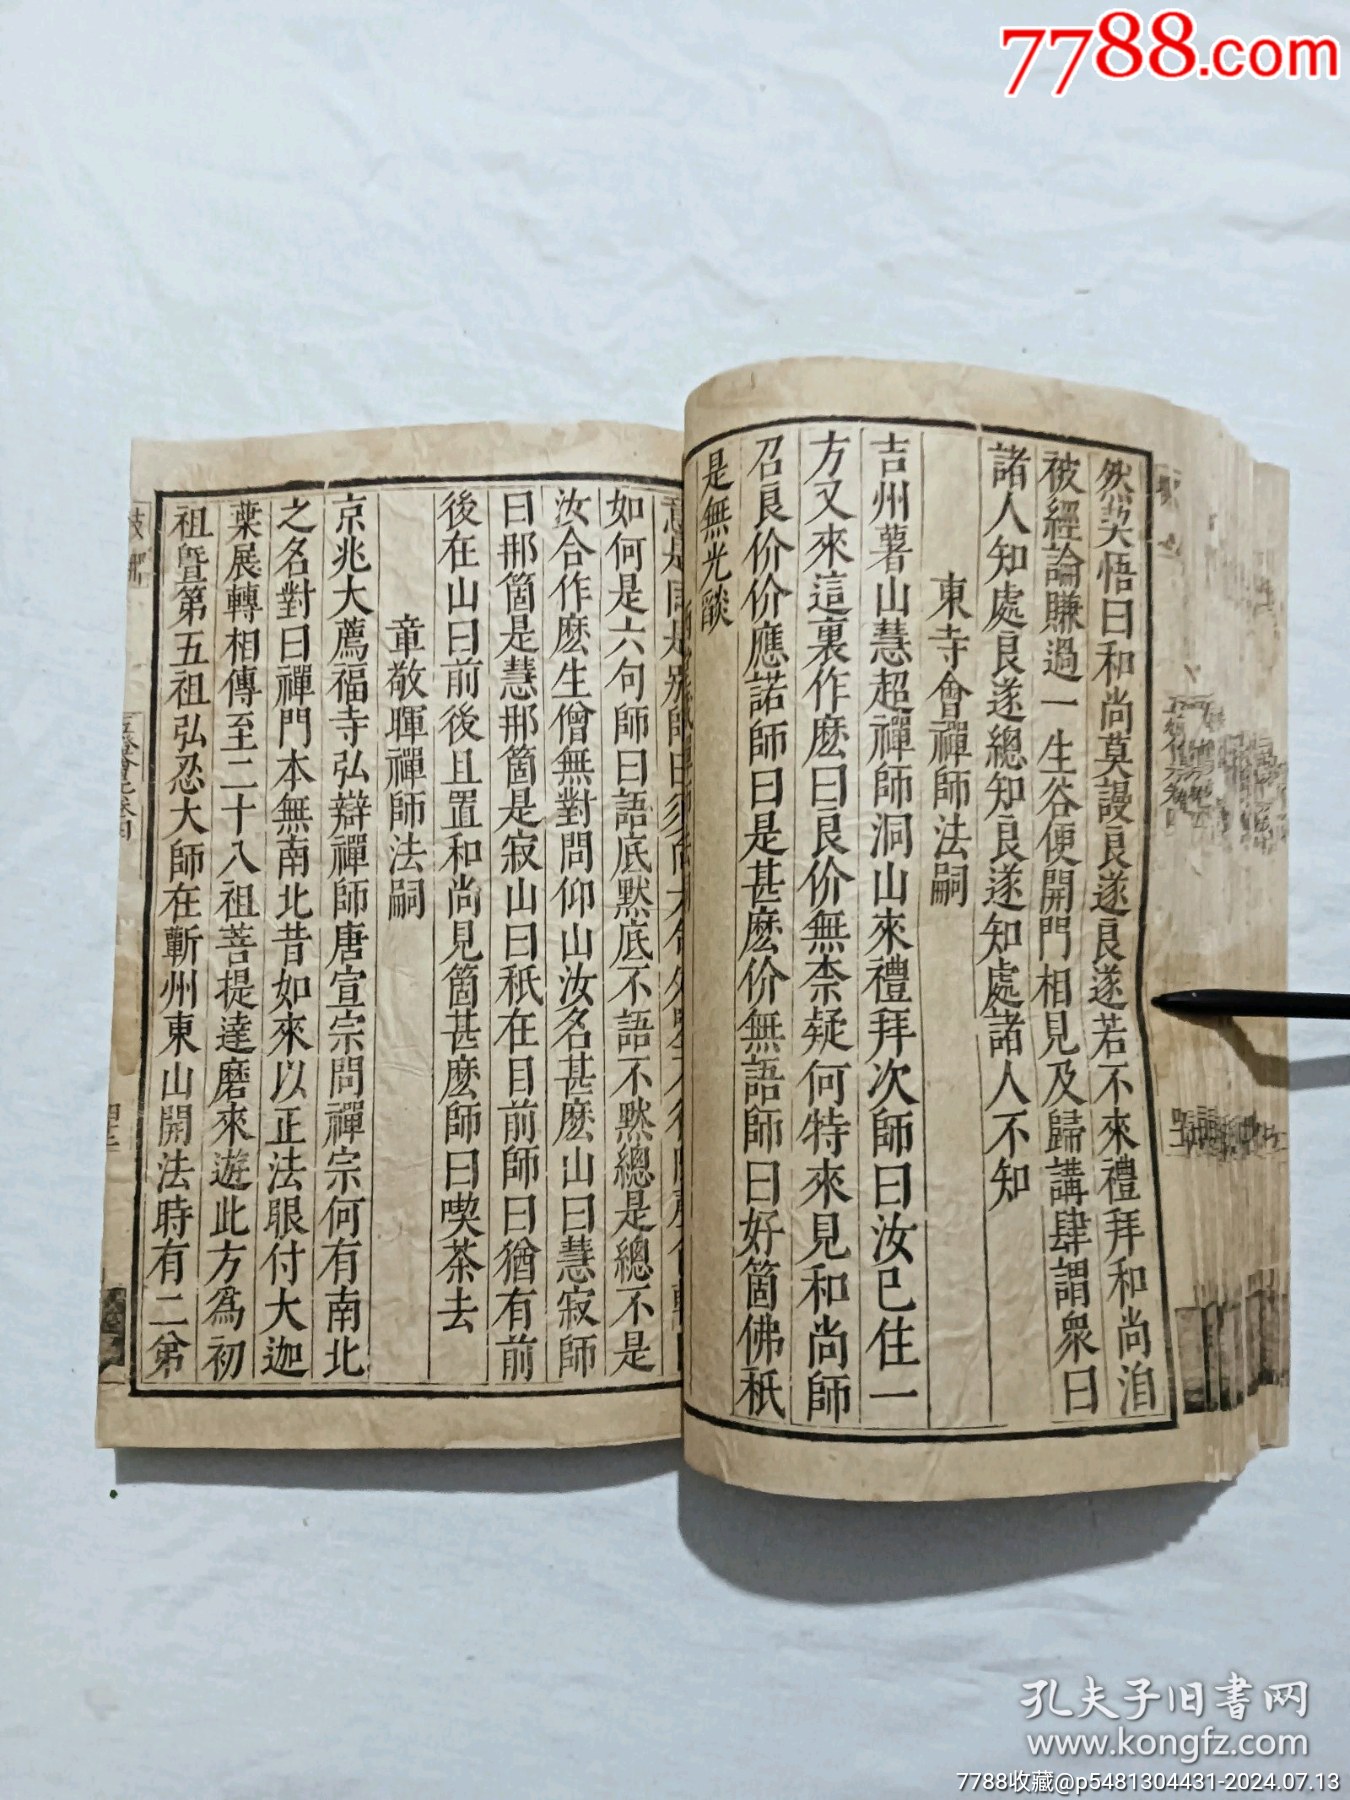 7788.com
然契悟曰和尚莫謾良遂良遂若不來禮拜和尚洎
被經論賺過一生谷便開門相見及歸講肆謂衆曰
諸人知處良遂總知良遂知處諸人不知
東寺會禪師法嗣
吉州薯山慧超禪師洞山來禮拜次師曰汝已住一
方又來這裏作麽曰良价無柰疑何特來見和尚師
召良价价應諾師曰是甚麽价無語師曰好箇佛秖
是無光燄
如何是六句師曰語底默底不語不默總是總不是
汝合作麽生僧無對問仰山汝名甚麽山曰慧寂師
曰那箇是慧那箇是寂山曰秖在目前師曰猶有前
後在山曰前後且置和尚見箇甚麽師曰喫茶去
章敬暉禪師法嗣
京兆大薦福寺弘辯禪師唐宣宗問禪宗何有南北
之名對曰禪門本無南北昔如來以正法眼付大迦
葉展轉相傳至二十八祖菩提達磨來遊此方爲初
祖暨第五祖弘忍大師在蘄州東山開法時有二弟
孔夫子旧书网
www.kongfz.com
7788收藏@p5481304431-2024.07.13